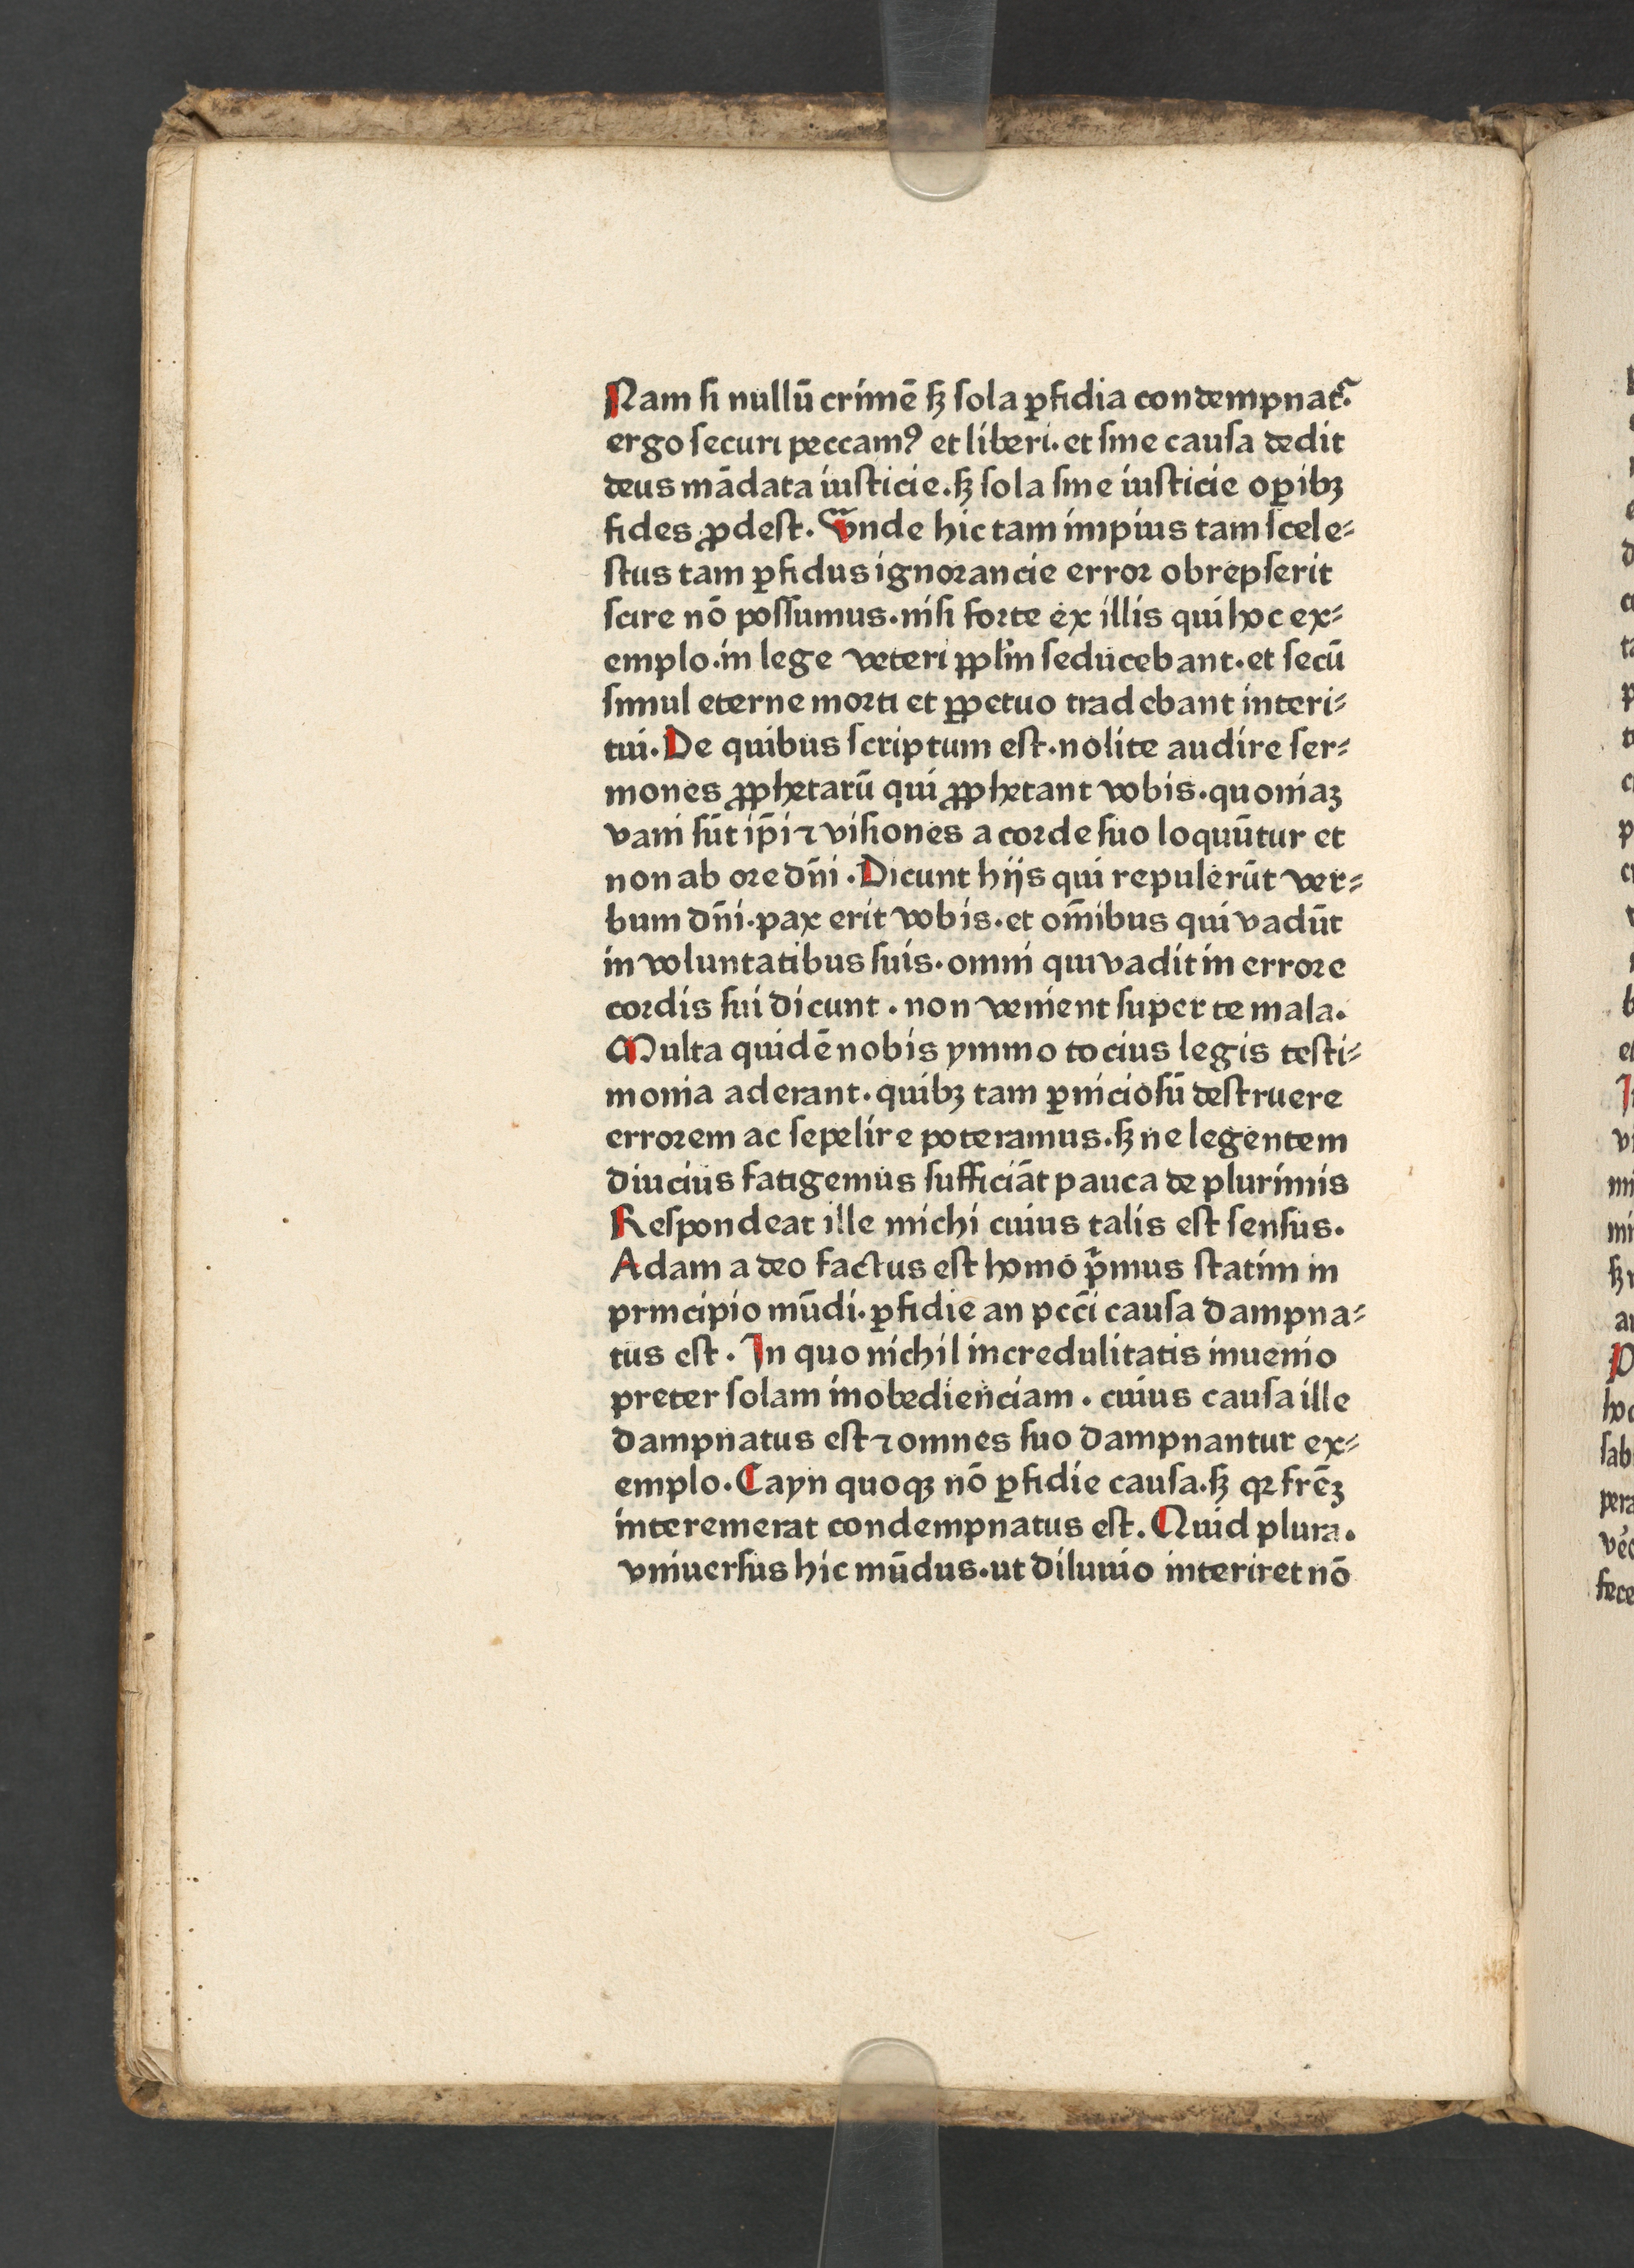 Nam ſi nullū crimē ſꝫ ſola ꝑfidia condempnatᷣ.
ergo ſecuri peccamꝰ et liberi. et ſine cauſa dedit
deus mādata iuſticie. ſꝫ ſola ſine iuſticie oꝑibꝫ
fides ꝓdeſt. Vnde hic tam impius tam ſcele⸗
ſtus tam ꝑfidus ignorancie error obrepſerit
ſcire nō poſſumus. niſi forte ex illis qui hoc ex⸗
emplo. in lege veteri ppl̄m ſeducebant. et ſecū
ſimul eterne morti et ꝑpetuo tradebant interi⸗
tui. De quibus ſcriptum eſt. nolite audire ſer⸗
mones ꝓphetarū qui ꝓphetant vobis. quoniaꝫ
vani ſūt ip̄i ⁊ viſiones a corde ſuo loquūtur et
non ab ore dn̄i. Dicunt hijs qui repulerūt ver⸗
bum dn̄i. pax erit vobis. et om̄ibus qui vadūt
in voluntatibus ſuis. omni qui vadit in errore
cordis ſui dicunt. non venient ſuper te mala.
Multa quidē nobis ymmo tocius legis teſti⸗
monia aderant. quibꝫ tam ꝑnicioſū deſtruere
errorem ac ſepelire poteramus. ſꝫ ne legentem
diucius fatigemus ſufficiāt pauca de plurimis
Reſpondeat ille michi cuius talis eſt ſenſus.
Adam a deo factus eſt homo pͥmus ſtatim in
principio mūdi. ꝑfidie an pcc̄i cauſa dampna⸗
tus eſt. In quo nichil incredulitatis inuenio
preter ſolam inobedienciam. cuius cauſa ille
dampnatus eſt ⁊ omnes ſuo dampnantur ex⸗
emplo. Cayn quoqꝫ nō ꝑfidie cauſa. ſꝫ qꝛ frēꝫ
interemerat condempnatus eſt. Quid plura.
vniuerſus hic mūdus. ut diluuio interiret nō